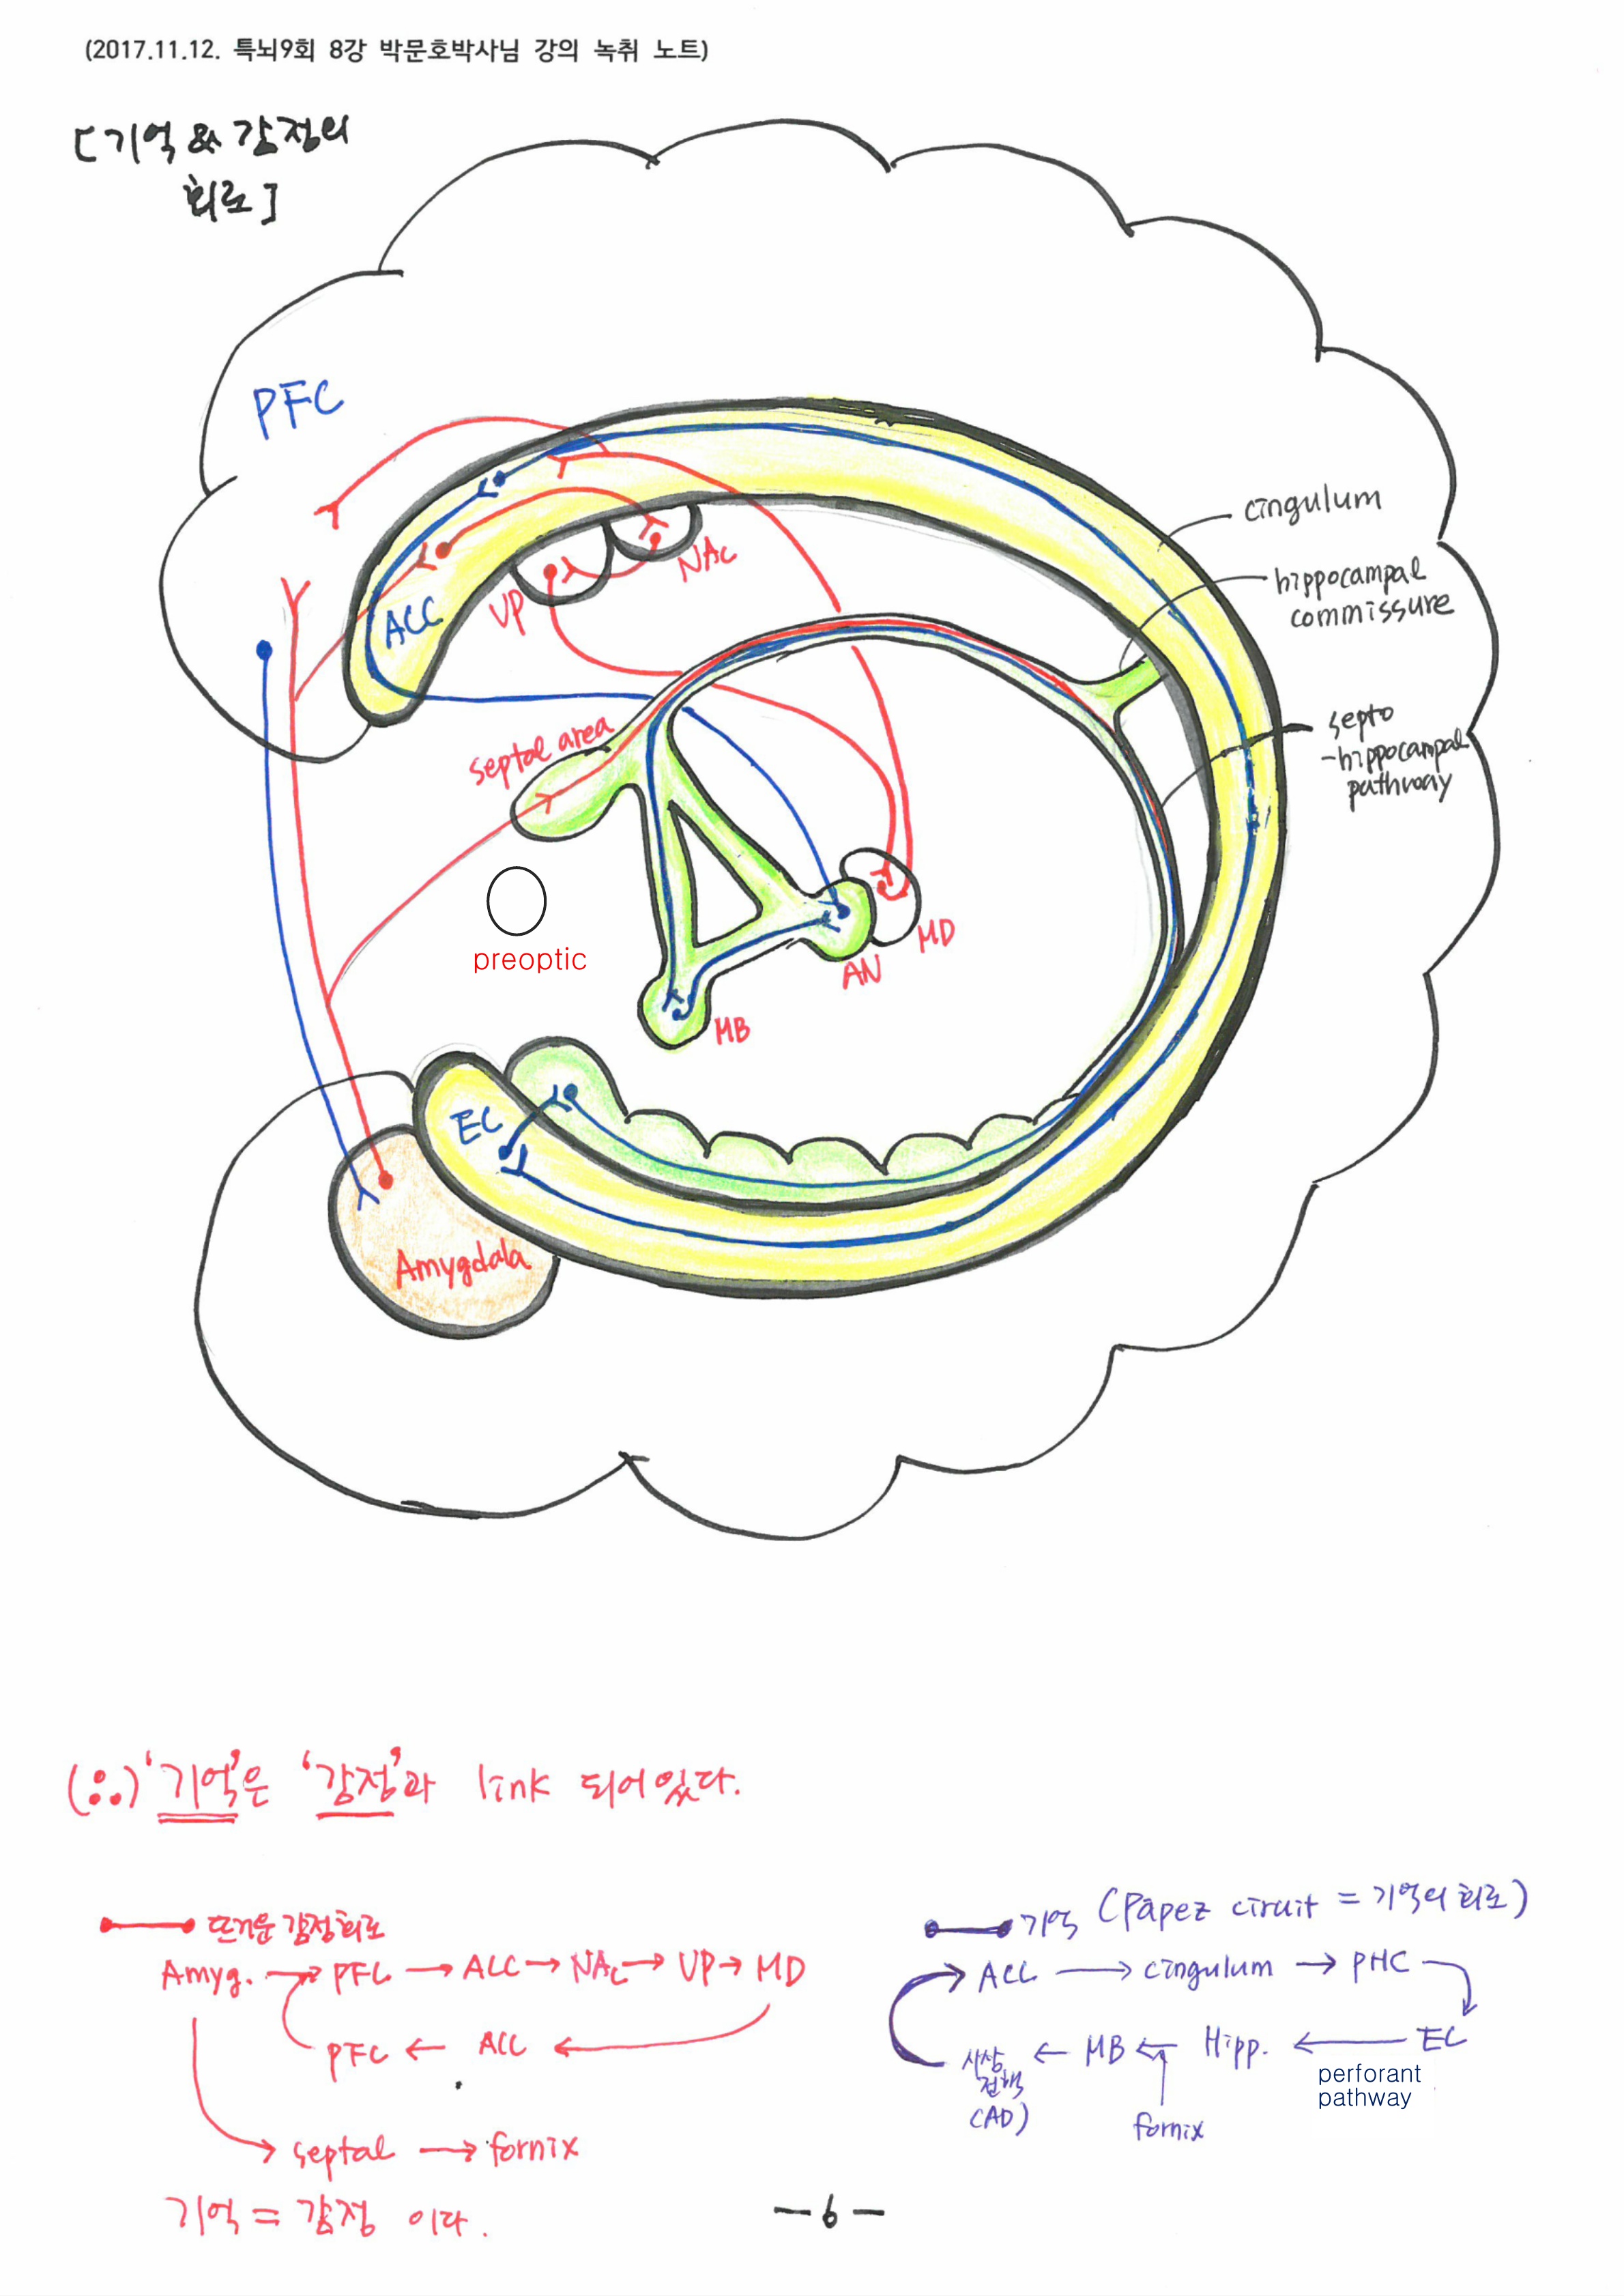 (2017.11.12. 특뇌9회 8강 박문호박사님 강의 녹취 노트)
[기억 & 감정의
회로]
PFC
cingulum
NAc
hippocampal
commissure
VP
ACC
septal area
septo
-hippocampal
pathway
MD
preoptic
AN
MB
EC
Amygdala
(∴) '기억'은 '감정'과 link 되어있다.
뜨거운 감정회로
기억 (Papez ciruit = 기억의 회로)
Amyg. → PFC → ACC → NAc → VP → MD
PFC ← ACC ←
septal → fornix
기억 = 감정 이다.
→ ACC → cingulum → PHC
시상 ← MB ← Hipp. ← EC
전핵
(AD)
fornix
perforant
pathway
- 6 -